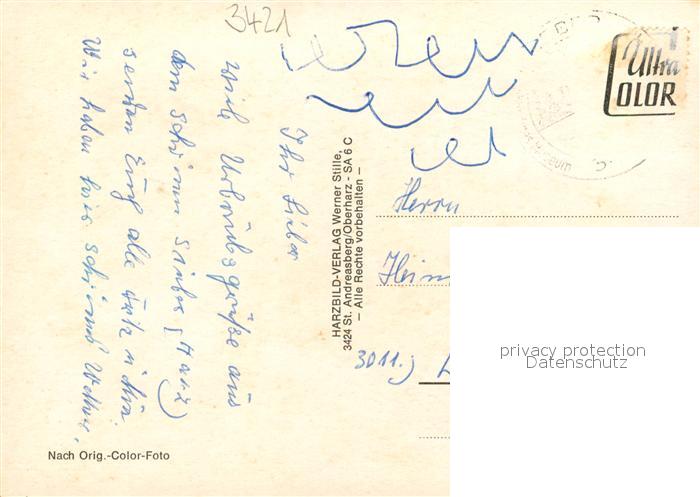 3421
Ultra
COLOR
Ihr Lieben
Viele Urlaubsgrüße aus
dem schönen Sieber (Harz)
senden Euch alle
Wir haben hier schönes Wetter,
HARZBILD-VERLAG Werner Stille,
3424 St. Andreasberg/Oberharz - SA 6 C
– Alle Rechte vorbehalten –
Herrn
Hein
3011
privacy protection
Datenschutz
Nach Orig.-Color-Foto